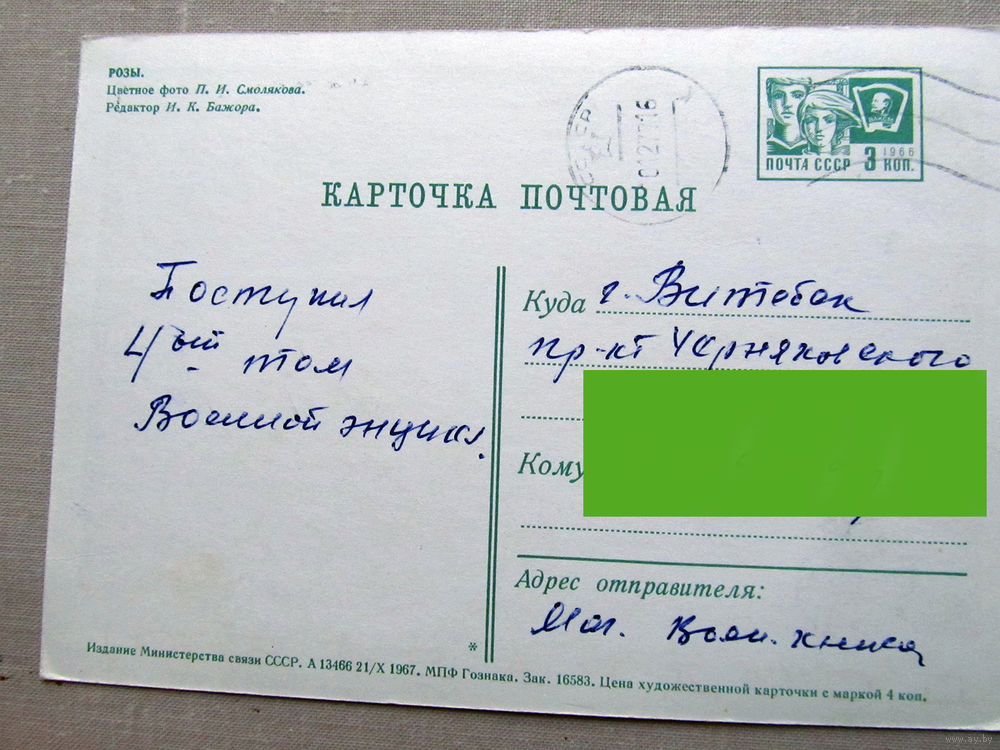 РОЗЫ.
Цветное фото П. И. Смолякова.
Редактор И. К. Бажора.
1966
ПОЧТА СССР 3 КОП.
КАРТОЧКА ПОЧТОВАЯ
Поступил
4ый том
Военной энцикл.
Куда г. Витебск
пр-кт Черняховского
Кому
Адрес отправителя:
Маг. Воен. книга
*
Издание Министерства связи СССР. А 13466 21/X 1967. МПФ Гознака. Зак. 16583. Цена художественной карточки с маркой 4 коп.
www.ay.by